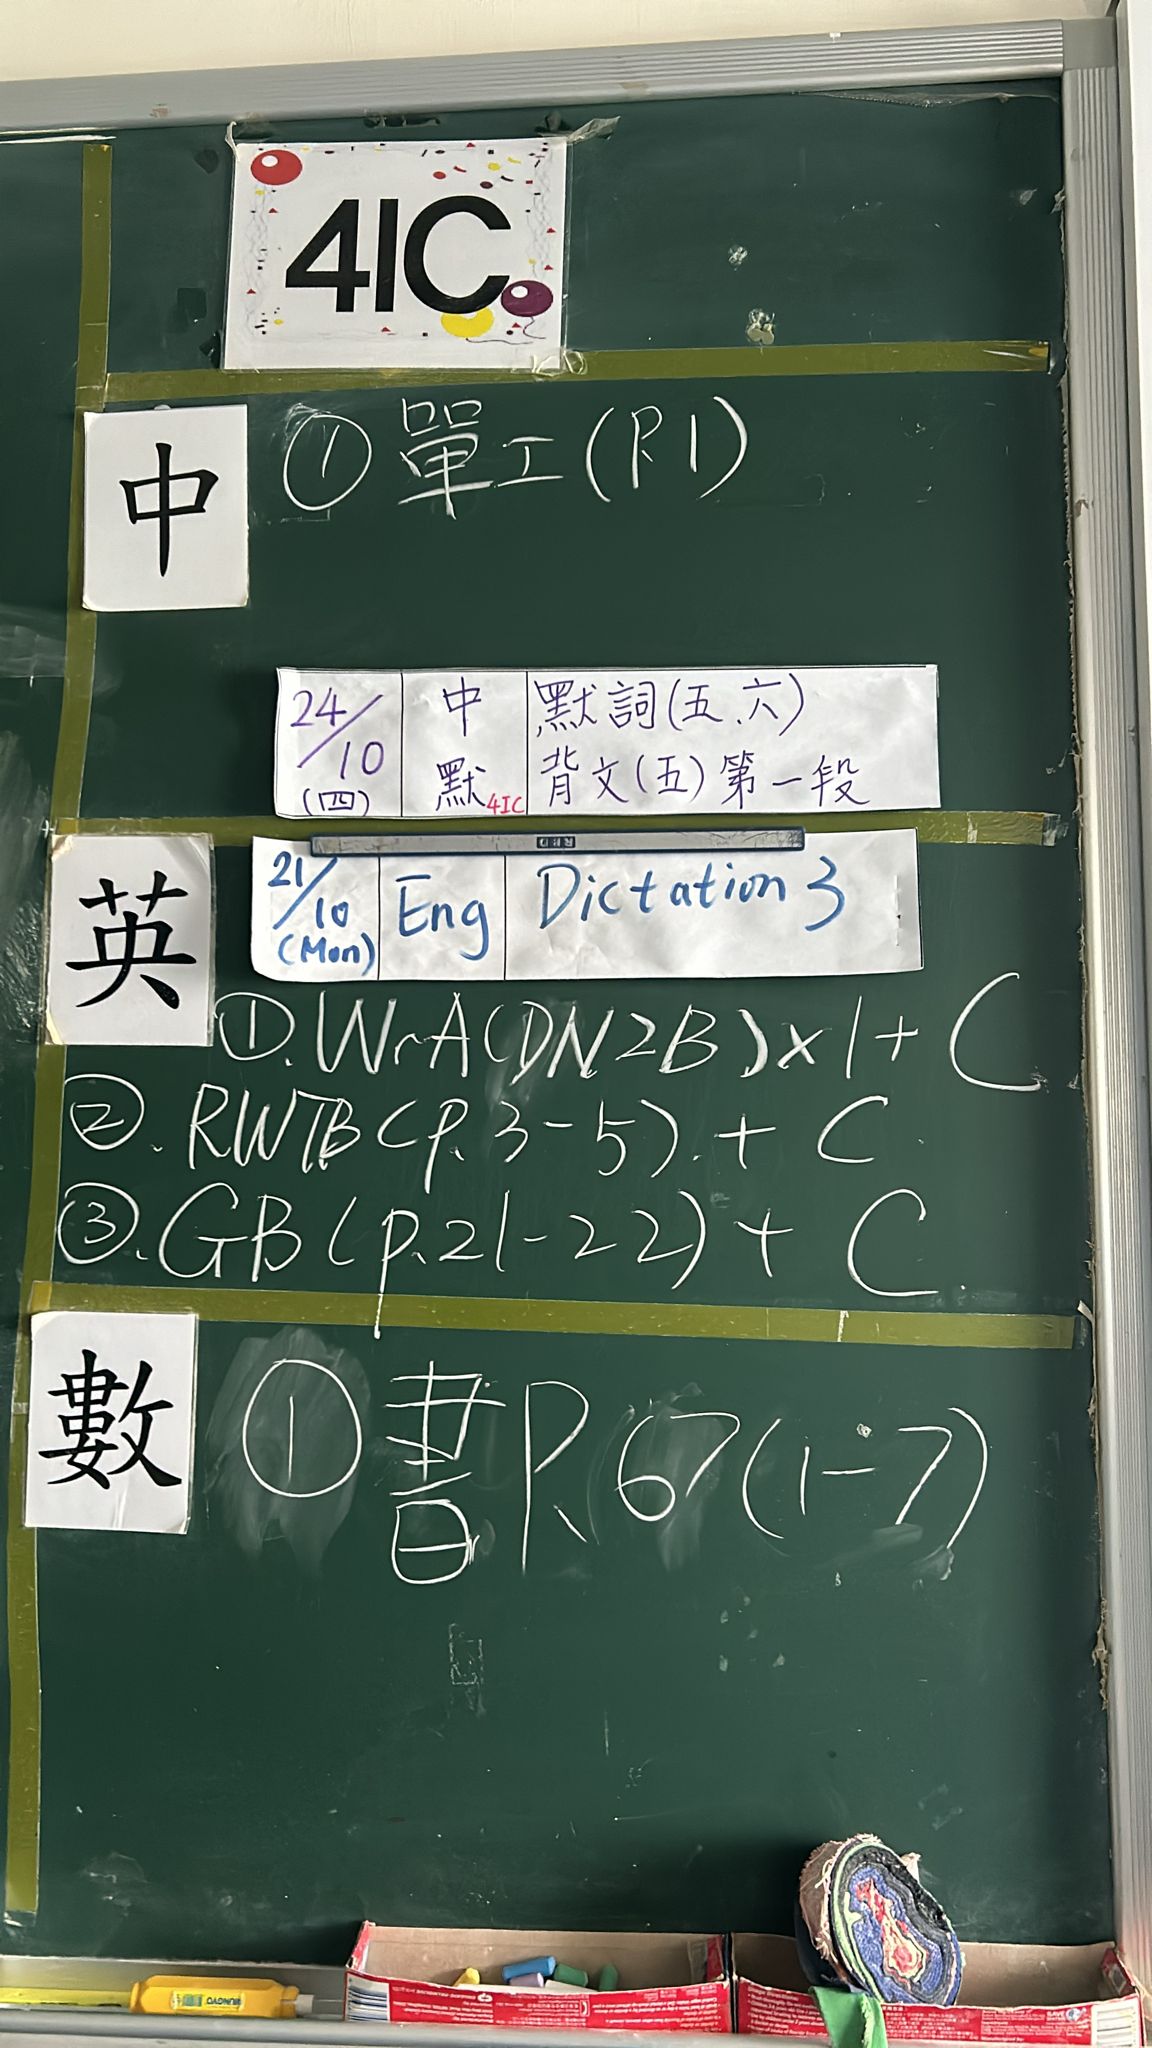 4IC
中
① 單工(P.1)
24/10 (四) 中默 4IC 默詞(五、六)
背文(五)第一段
英
21/10 (Mon) Eng Dictation 3
①. WrA(DN2B)x1+C
②. RWTB(p.3-5).+C.
③. GB(p.21-22)+C.
數
① 書P.67(1-7)